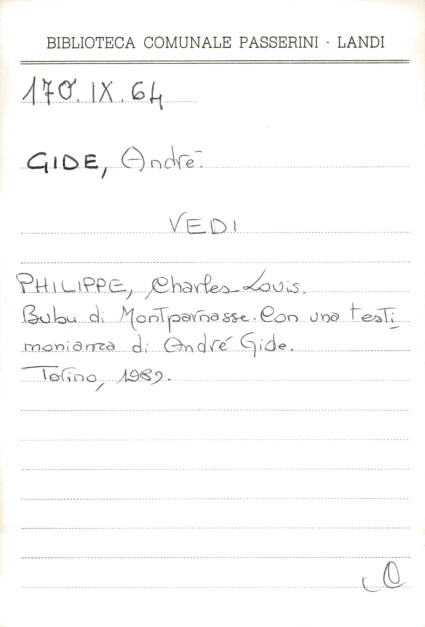 BIBLIOTECA COMUNALE PASSERINI - LANDI
170. IX. 64
GIDE, André.
VEDI
PHILIPPE, Charles-Louis.
Bubu di Montparnasse. Con una testi
monianza di André Gide.
Torino, 1989.